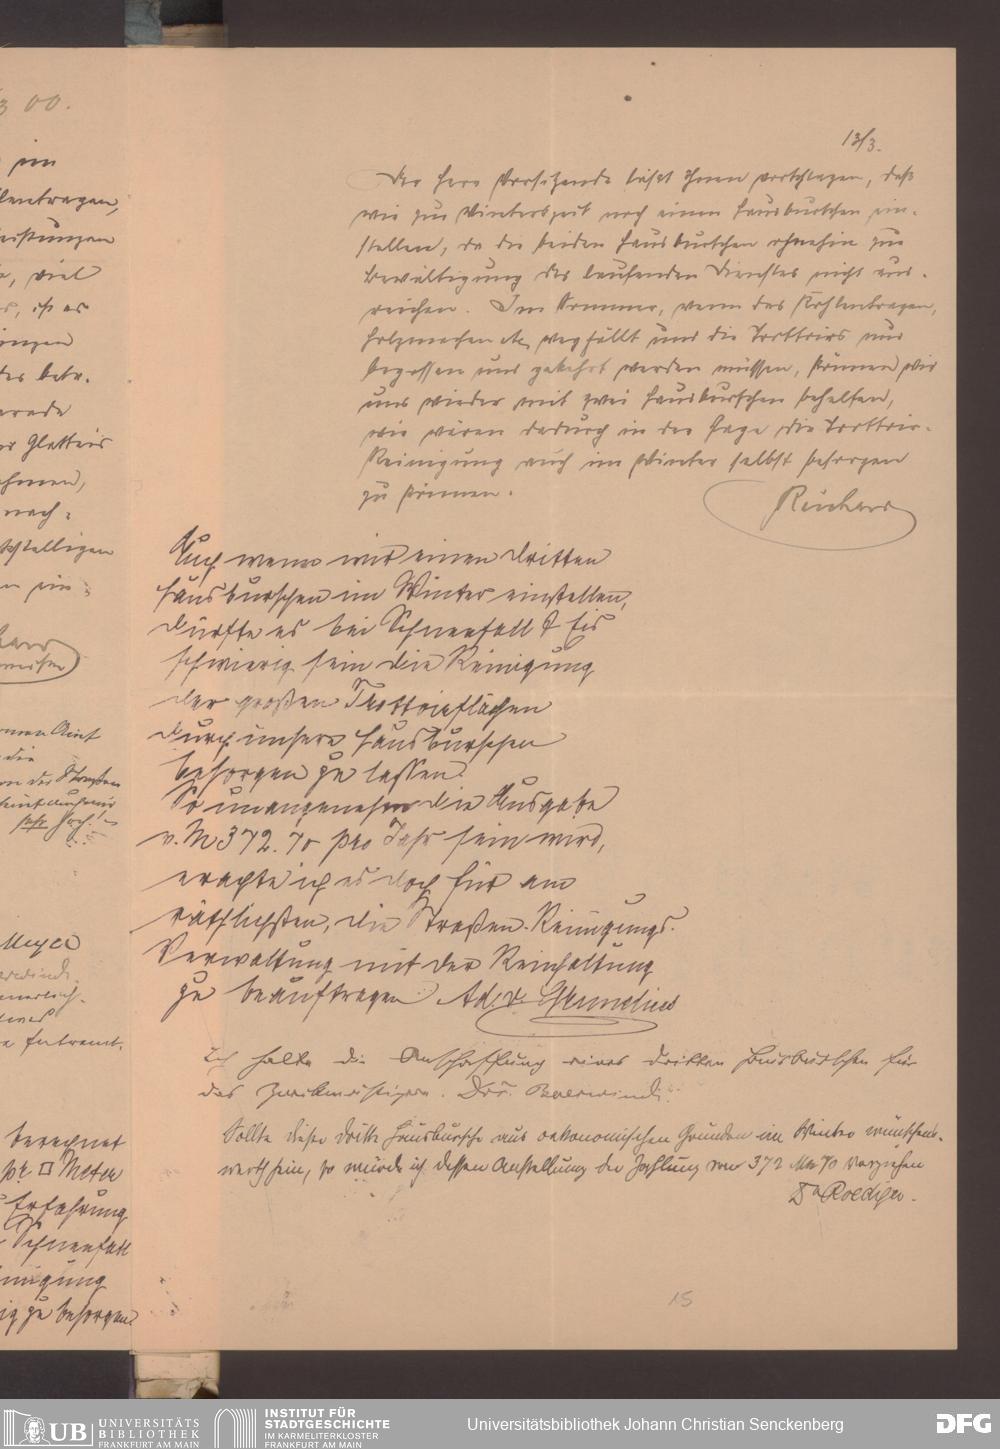 13/3.
Der Herr Vorsitzende läßt Ihnen vorschlagen, daß
wir zur Winterszeit noch einen Hausburschen ein-
stellen, da die beiden Hausburschen ohnehin zur
Bewältigung des laufenden Dienstes nicht aus-
reichen. Im Sommer, wenn das Kohlentragen,
Holzmachen etc. wegfällt und die Trottoirs nur
begossen und gekehrt werden müssen, können wir
uns wieder mit zwei Hausburschen behelfen,
wir wären dadurch in der Lage die Trottoir-
Reinigung auch im Winter selbst besorgen
zu können.
Reichard
Auch wenn wir einen dritten
Hausburschen im Winter einstellen,
dürfte es bei Schneefall & Eis
schwierig sein die Reinigung
der großen Trottoirflächen
durch unsere Hausburschen
besorgen zu lassen.
So unangenehm die Ausgabe
v. M 372. 70 pro Jahr sein wird,
erachte ich es doch für am
räthlichsten, die Straßen-Reinigungs-
Verwaltung mit der Reinhaltung
zu beauftragen. Ad. v.
Ich halte die Anschaffung eines dritten Hausburschen für
das Zweckmäßigere.
Sollte dieser dritte Hausbursche aus oekonomischen Gründen im Winter wünschens-
werth sein, so würde ich dessen Anstellung der Zahlung von 372 Mk 70 vorziehen
Dr Roediger.
15
3 00.
im
viel
ist es
Glatteis
nach-
ein
Amt
die
Meyer
berechnet
pr. □ Meter
Erfahrung
Schneefall
zu besorgen.
UB UNIVERSITÄTS
BIBLIOTHEK
FRANKFURT AM MAIN
INSTITUT FÜR
STADTGESCHICHTE
IM KARMELITERKLOSTER
FRANKFURT AM MAIN
Universitätsbibliothek Johann Christian Senckenberg
DFG